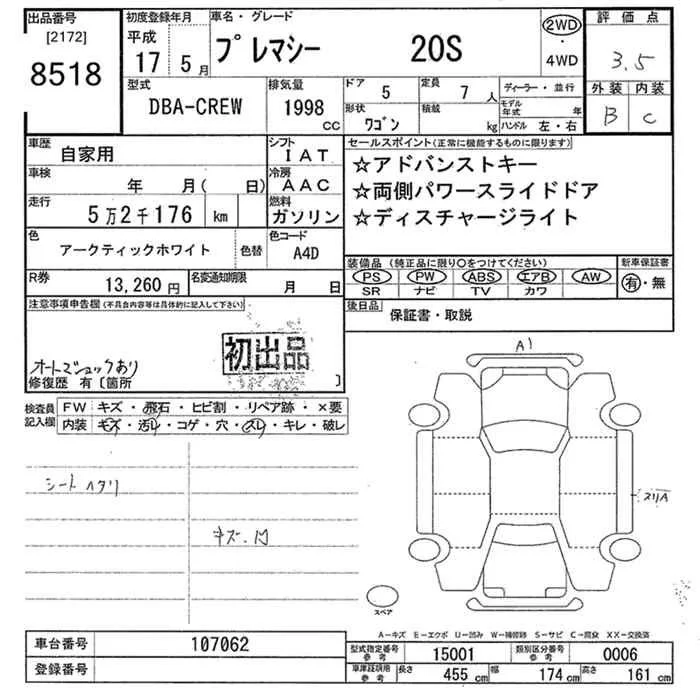 出品番号 初度登録年月 車名・グレード 評価点
[2172] 平成
8518 17 5月 プレマシー 20S 2WD・4WD 3.5
型式 排気量 ドア 5 定員 7人 ディーラー・並行 外装 内装
DBA-CREW 1998cc 形状 ワゴン 積載 kg モデル年式 年 B C
ハンドル 左・右
車歴 自家用 シフト IAT セールスポイント(正常に機能するものに限ります)
車検 年 月( 日) 冷房 AAC ☆アドバンストキー
走行 5万2千176 km 燃料 ガソリン ☆両側パワースライドドア
☆ディスチャージライト
色 アークティックホワイト 色替 色コード A4D
装備品(純正品に限り○をつけてください) 新車保証書
R券 13,260円 名変通知期限 月 日 PS PW ABS エアB AW 有・無
SR ナビ TV カワ
注意事項申告欄(不具合内容等は具体的に記入して下さい) 後日品 保証書・取説
初出品
オートマショックあり
修復歴 有〔箇所 〕
A1
検査員記入欄 FW キズ・飛石・ヒビ割・リペア跡・×要
内装 キズ・汚レ・コゲ・穴・スレ・キレ・破レ
シートヘタリ
キズ・凹
スリA
スペア
A-キズ E-エクボ U-凹み W-補修跡 S-サビ C-腐食 XX-交換済
車台番号 107062 型式指定番号 参考 15001 類別区分番号 参考 0006
登録番号 車庫証明用 参考 長さ 455cm 幅 174cm 高さ 161cm